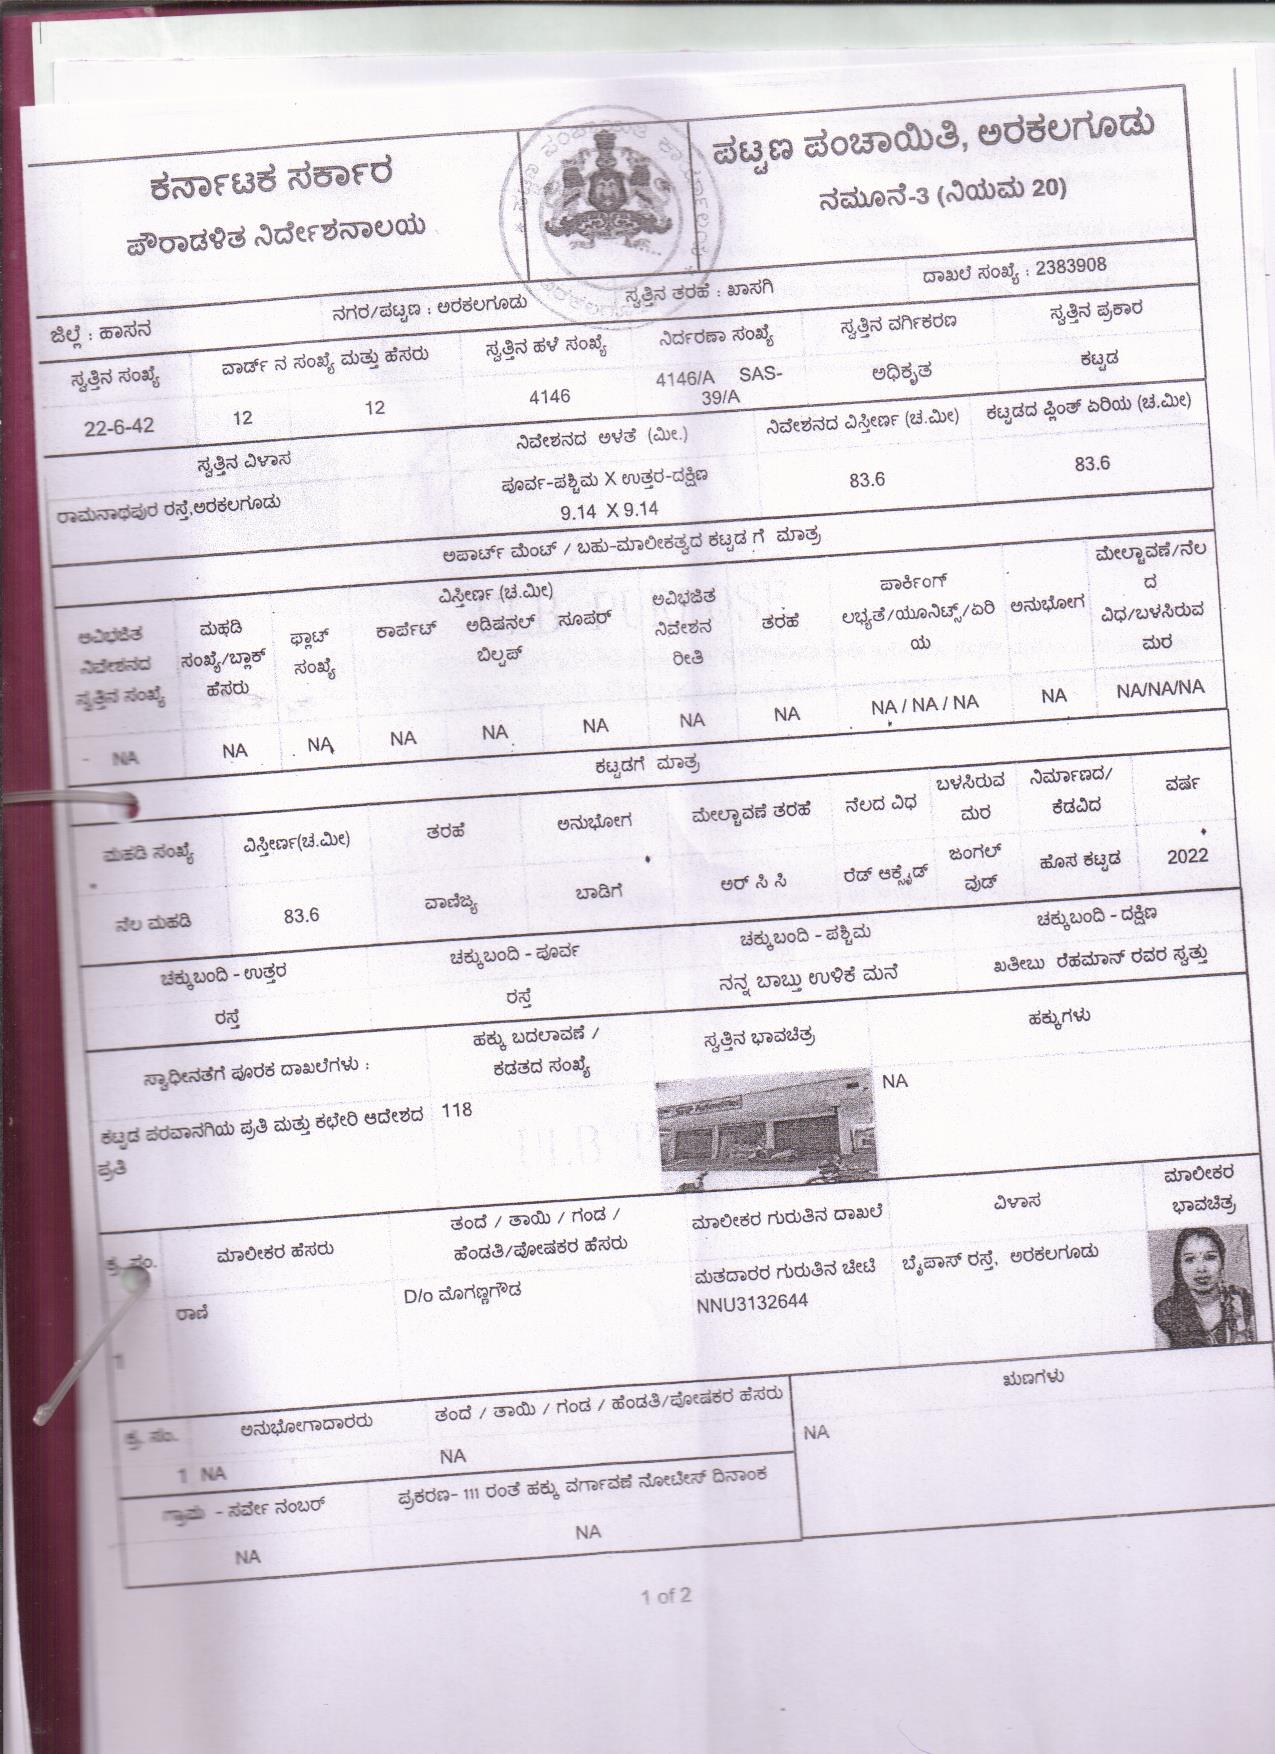 ಕರ್ನಾಟಕ ಸರ್ಕಾರ
ಪೌರಾಡಳಿತ ನಿರ್ದೇಶನಾಲಯ
ಪಟ್ಟಣ ಪಂಚಾಯಿತಿ, ಅರಕಲಗೂಡು
ನಮೂನೆ-3 (ನಿಯಮ 20)
ಜಿಲ್ಲೆ : ಹಾಸನ ನಗರ/ಪಟ್ಟಣ : ಅರಕಲಗೂಡು ಸ್ವತ್ತಿನ ತರಹೆ : ಖಾಸಗಿ ದಾಖಲೆ ಸಂಖ್ಯೆ : 2383908
ಸ್ವತ್ತಿನ ಸಂಖ್ಯೆ ವಾರ್ಡ್ ನ ಸಂಖ್ಯೆ ಮತ್ತು ಹೆಸರು ಸ್ವತ್ತಿನ ಹಳೆ ಸಂಖ್ಯೆ ನಿರ್ದರಣಾ ಸಂಖ್ಯೆ ಸ್ವತ್ತಿನ ವರ್ಗಿಕರಣ ಸ್ವತ್ತಿನ ಪ್ರಕಾರ
22-6-42 12 12 4146 4146/A SAS- ಅಧಿಕೃತ ಕಟ್ಟಡ
39/A
ಸ್ವತ್ತಿನ ವಿಳಾಸ ನಿವೇಶನದ ಅಳತೆ (ಮೀ.) ನಿವೇಶನದ ವಿಸ್ತೀರ್ಣ (ಚ.ಮೀ) ಕಟ್ಟಡದ ಪ್ಲಿಂತ್ ಏರಿಯ (ಚ.ಮೀ)
ರಾಮನಾಥಪುರ ರಸ್ತೆ,ಅರಕಲಗೂಡು ಪೂರ್ವ-ಪಶ್ಚಿಮ X ಉತ್ತರ-ದಕ್ಷಿಣ 83.6 83.6
9.14 X 9.14
ಅಪಾರ್ಟ್ ಮೆಂಟ್ / ಬಹು-ಮಾಲೀಕತ್ವದ ಕಟ್ಟಡ ಗೆ ಮಾತ್ರ
ವಿಸ್ತೀರ್ಣ (ಚ.ಮೀ)
ಅವಿಭಜಿತ
ನಿವೇಶನದ
ಸ್ವತ್ತಿನ ಸಂಖ್ಯೆ
ಮಹಡಿ
ಸಂಖ್ಯೆ/ಬ್ಲಾಕ್
ಹೆಸರು
ಫ್ಲಾಟ್
ಸಂಖ್ಯೆ
ಕಾರ್ಪೆಟ್
ಅಡಿಷನಲ್
ಬಿಲ್ಟಪ್
ಸೂಪರ್
ಅವಿಭಜಿತ
ನಿವೇಶನ
ರೀತಿ
ತರಹೆ
ಪಾರ್ಕಿಂಗ್
ಲಭ್ಯತೆ/ಯೂನಿಟ್ಸ್/ಏರಿ
ಯ
ಅನುಭೋಗ
ಮೇಲ್ಚಾವಣೆ/ನೆಲ
ದ
ವಿಧ/ಬಳಸಿರುವ
ಮರ
NA NA NA NA NA NA NA NA NA / NA / NA NA NA/NA/NA
ಕಟ್ಟಡಗೆ ಮಾತ್ರ
ಮಹಡಿ ಸಂಖ್ಯೆ ವಿಸ್ತೀರ್ಣ(ಚ.ಮೀ) ತರಹೆ ಅನುಭೋಗ ಮೇಲ್ಚಾವಣೆ ತರಹೆ ನೆಲದ ವಿಧ ಬಳಸಿರುವ ನಿರ್ಮಾಣದ/ ವರ್ಷ
ಮರ ಕೆಡವಿದ
ನೆಲ ಮಹಡಿ 83.6 ವಾಣಿಜ್ಯ ಬಾಡಿಗೆ ಆರ್ ಸಿ ಸಿ ರೆಡ್ ಆಕ್ಸೈಡ್ ಜಂಗಲ್ ಹೊಸ ಕಟ್ಟಡ 2022
ವುಡ್
ಚಕ್ಕುಬಂದಿ - ಉತ್ತರ ಚಕ್ಕುಬಂದಿ - ಪೂರ್ವ ಚಕ್ಕುಬಂದಿ - ಪಶ್ಚಿಮ ಚಕ್ಕುಬಂದಿ - ದಕ್ಷಿಣ
ರಸ್ತೆ ರಸ್ತೆ ನನ್ನ ಬಾಬ್ತು ಉಳಿಕೆ ಮನೆ ಖತೀಬು ರೆಹಮಾನ್ ರವರ ಸ್ವತ್ತು
ಸ್ವಾಧೀನತೆಗೆ ಪೂರಕ ದಾಖಲೆಗಳು : ಹಕ್ಕು ಬದಲಾವಣೆ / ಸ್ವತ್ತಿನ ಭಾವಚಿತ್ರ ಹಕ್ಕುಗಳು
ಕಡತದ ಸಂಖ್ಯೆ
ಕಟ್ಟಡ ಪರವಾನಗಿಯ ಪ್ರತಿ ಮತ್ತು ಕಛೇರಿ ಆದೇಶದ 118 NA
ಪ್ರತಿ
ಕ್ರ. ಸಂ. ಮಾಲೀಕರ ಹೆಸರು ತಂದೆ / ತಾಯಿ / ಗಂಡ / ಮಾಲೀಕರ ಗುರುತಿನ ದಾಖಲೆ ವಿಳಾಸ ಮಾಲೀಕರ
ಹೆಂಡತಿ/ಪೋಷಕರ ಹೆಸರು ಭಾವಚಿತ್ರ
1 ರಾಣಿ D/o ಮೊಗಣ್ಣಗೌಡ ಮತದಾರರ ಗುರುತಿನ ಚೀಟಿ ಬೈಪಾಸ್ ರಸ್ತೆ, ಅರಕಲಗೂಡು
NNU3132644
ಕ್ರ. ಸಂ. ಅನುಭೋಗಾದಾರರು ತಂದೆ / ತಾಯಿ / ಗಂಡ / ಹೆಂಡತಿ/ಪೋಷಕರ ಹೆಸರು ಋಣಗಳು
1 NA NA NA
ಗ್ರಾಮ - ಸರ್ವೇ ನಂಬರ್ ಪ್ರಕರಣ- 111 ರಂತೆ ಹಕ್ಕು ವರ್ಗಾವಣೆ ನೋಟೀಸ್ ದಿನಾಂಕ
NA NA
1 of 2